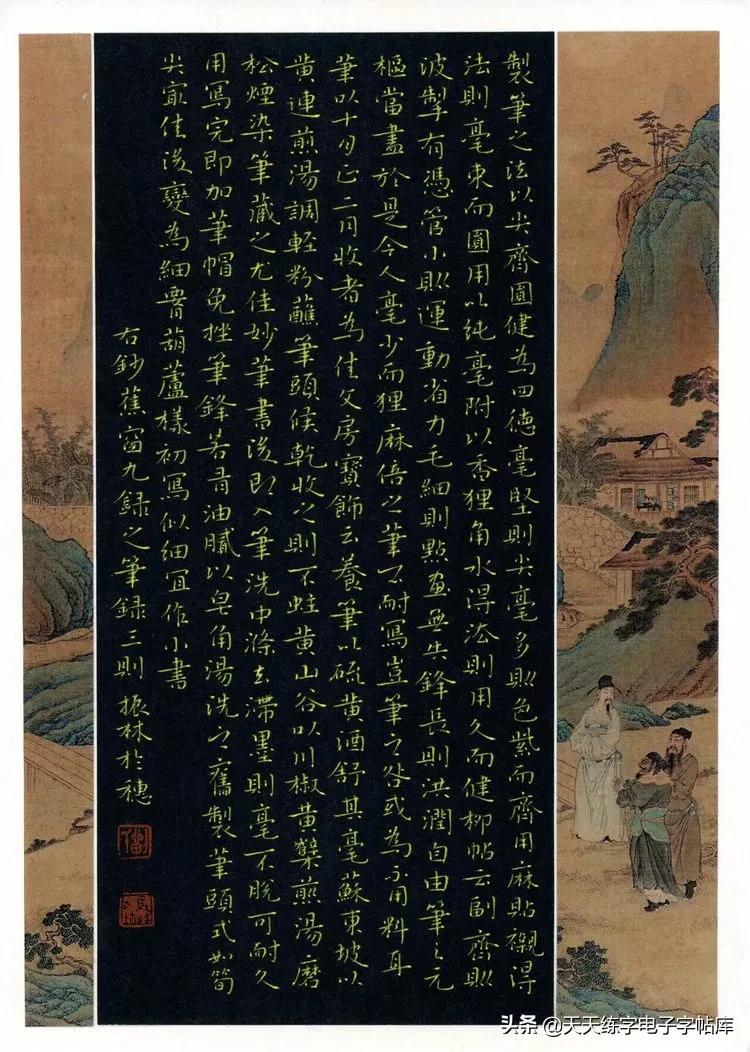 製筆之法以尖齊圓健為四德毫堅則尖毫多則色紫而齊用麻貼襯得
法則毫束而圓用以純毫附以香狸角水得法則用久而健柳帖云副齊則
波掣有憑管小則運動省力毛細則點畫無失鋒長則洪潤自由筆之元
樞當盡於是今人毫少而狸麻倍之筆不耐寫豈筆之咎或為不用料耳
筆以十月正二月收者為佳文房寶飾云養筆以硫黃酒舒其毫蘇東坡以
黃連煎湯調輕粉蘸筆頭候乾收之則不蛀黃山谷以川椒黃蘗煎湯磨
松煙染筆藏之尤佳妙筆書後即入筆洗中滌去滯墨則毫不脫可耐久
用寫完即加筆帽免挫筆鋒若有油膩以皂角湯洗之舊製筆頭式如筍
尖最佳後變為細腰葫蘆樣初寫似細宜作小書
右鈔蕉窗九錄之筆錄三則 振林於穗
头条 @天天练字电子字帖库